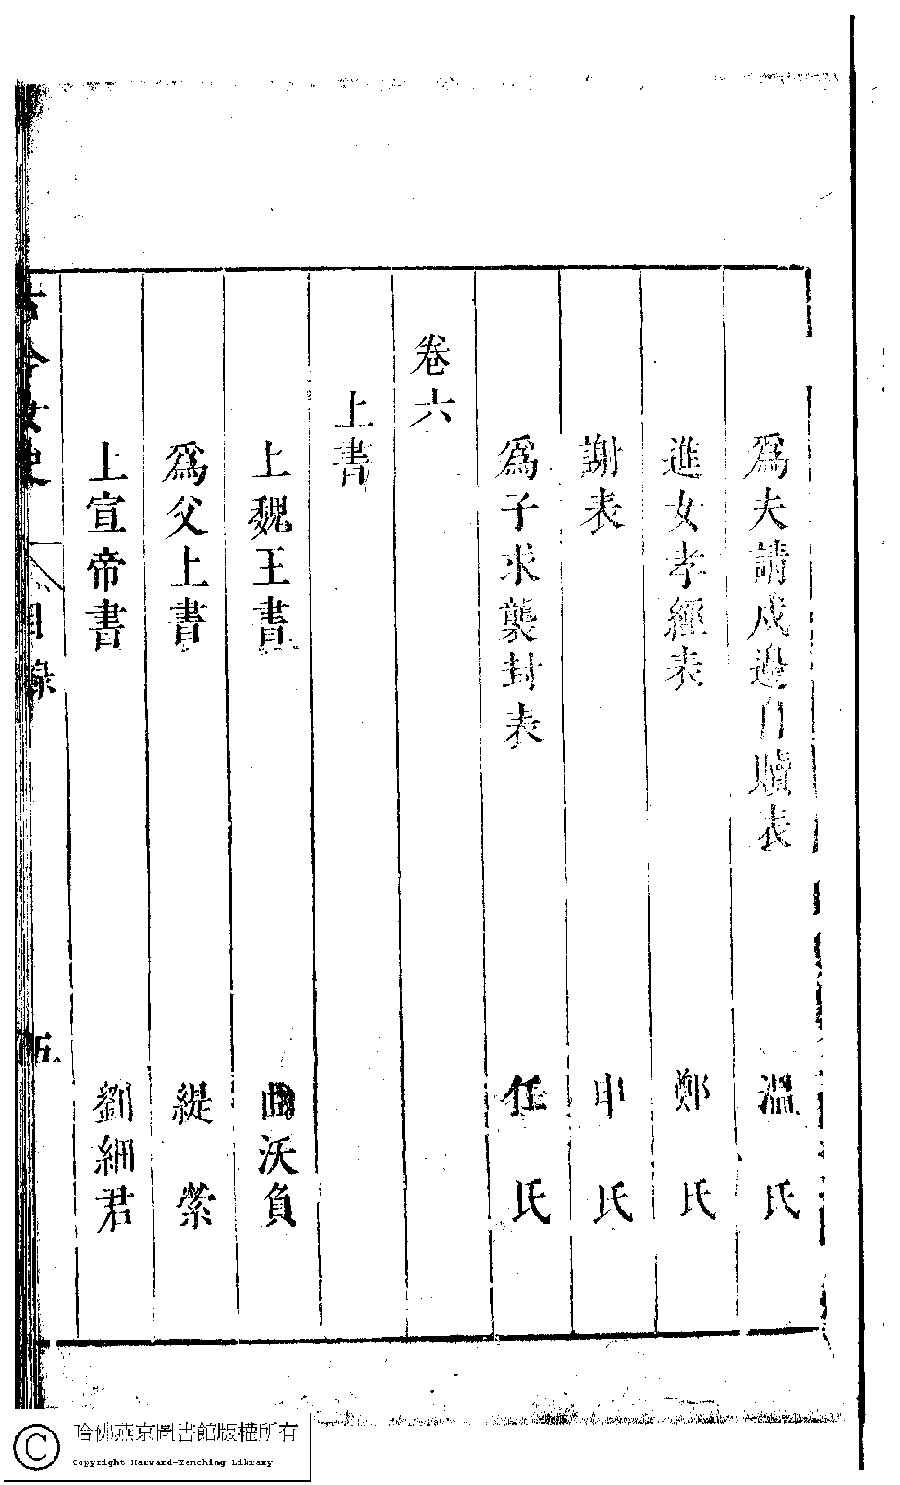 爲夫請戍邊自贖表 溫氏
進女孝經表 鄭氏
謝表 申氏
爲子求襲封表 任氏
卷六
上書
上魏王書 曲沃負
爲父上書 緹縈
上宣帝書 劉細君
古今女史 目錄 五
哈佛燕京圖書館版權所有
Copyright Harvard-Yenching Library